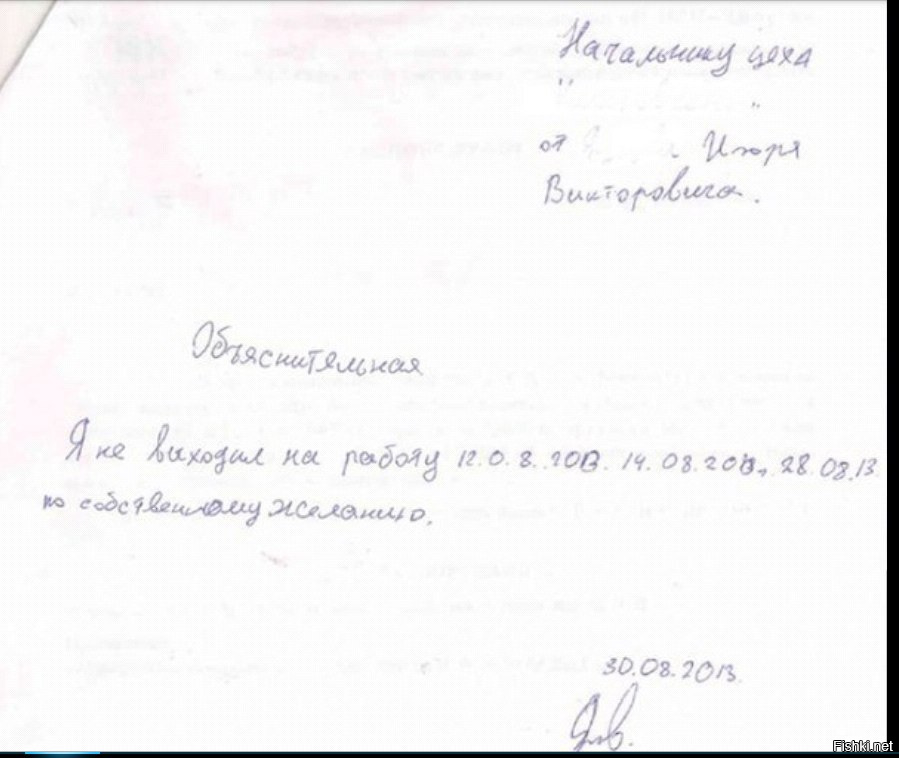 Начальнику цеха
"
"
от Игоря
Викторовича.
Объяснительная
Я не выходил на работу 12.0.8.2013. 14.08.2013, 28.08.13.
по собственному желанию.
30.08.2013.
Fishki.net